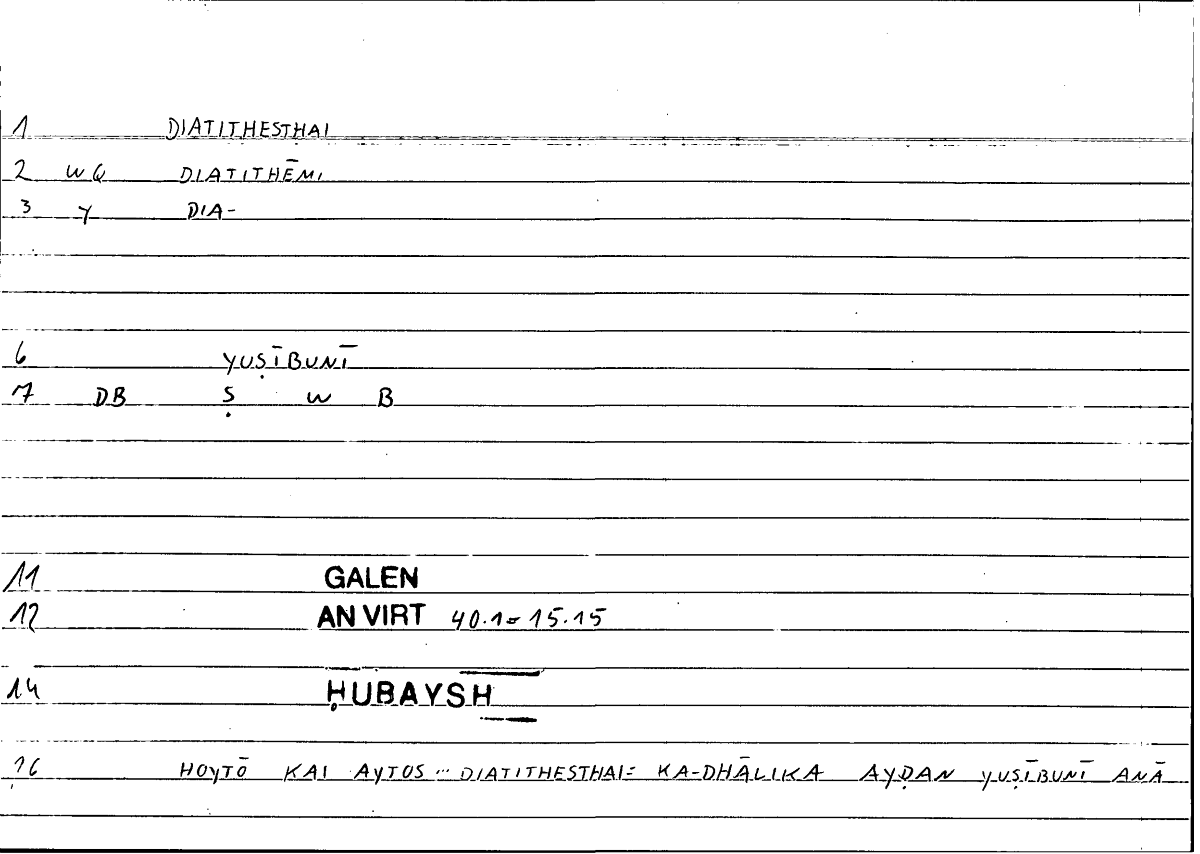 1 DIATITHESTHAI
2 WQ DIATITHĒMI
3 Y DIA-
6 YUṢĪBUNĪ
7 DB Ṣ W B
11 GALEN
12 AN VIRT 40.1=15.15
14 ḤUBAYSH
16 HOYTŌ KAI AYTOS ... DIATITHESTHAI= KA-DHĀLIKA AYḌAN YUṢĪBUNĪ ANĀ